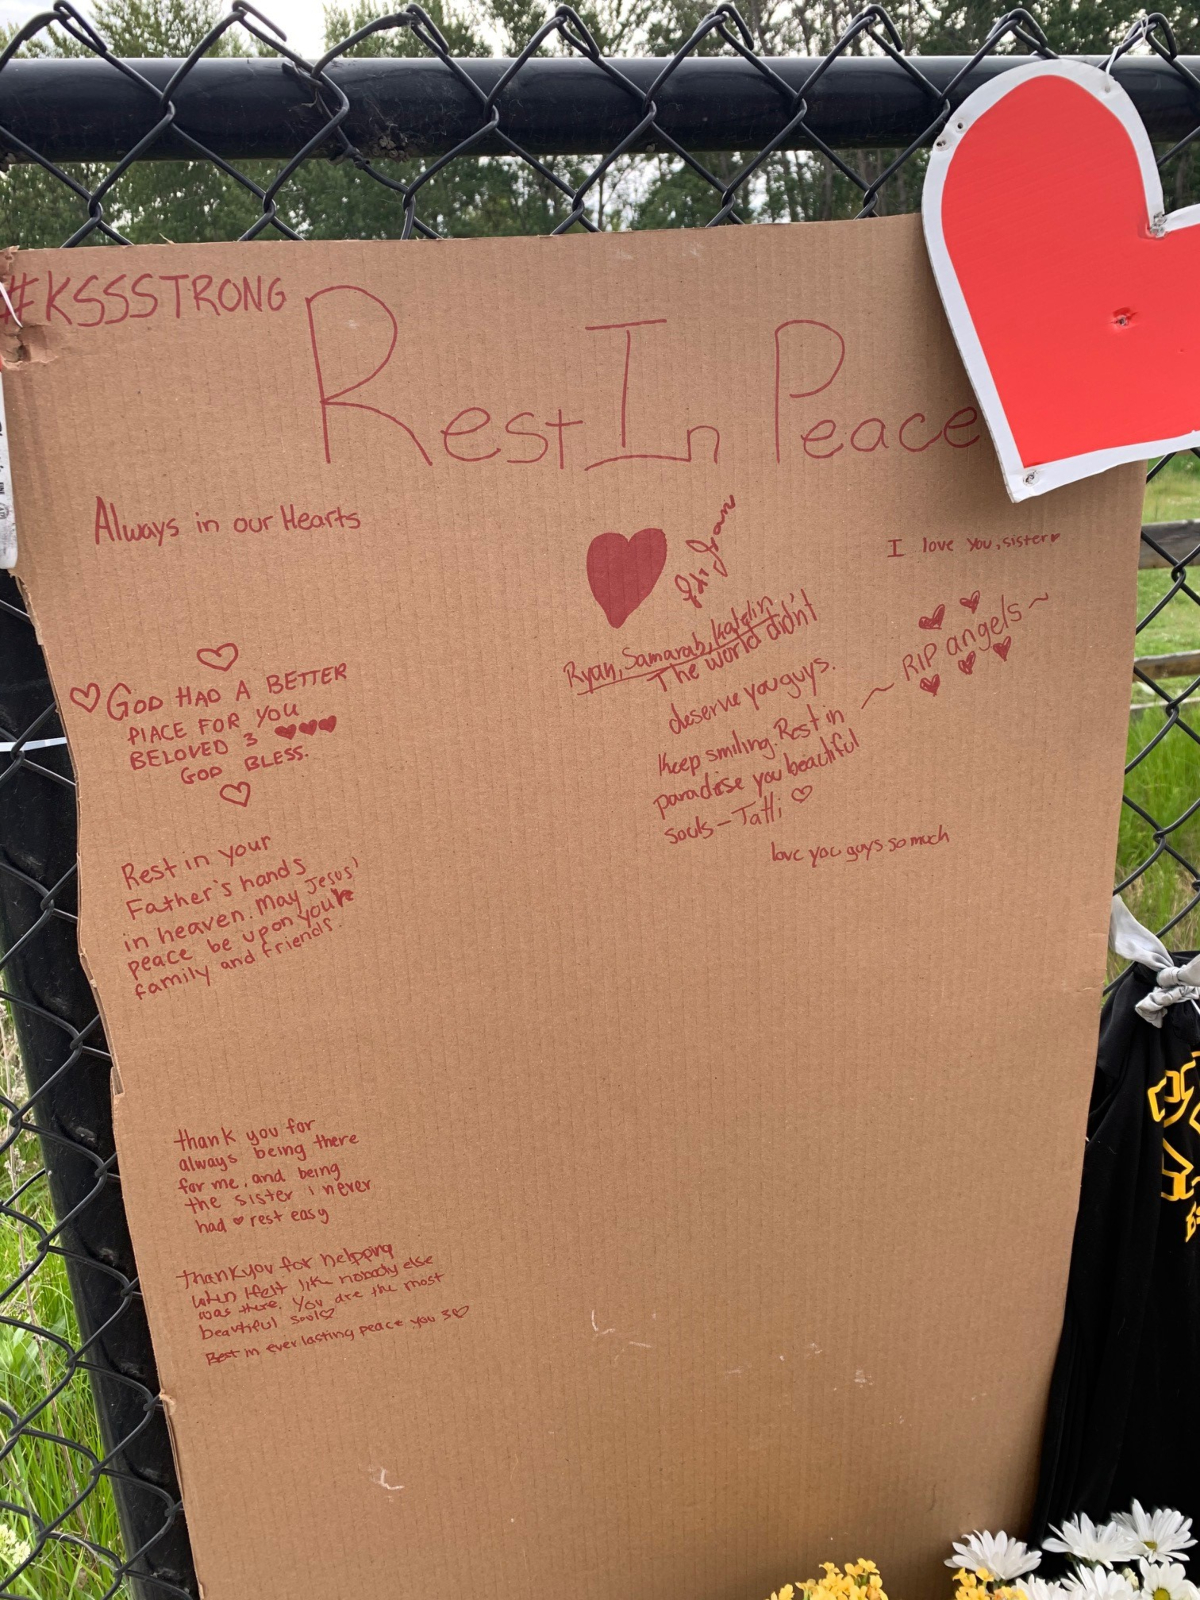 #KSSSTRONG
Rest In Peace
Always in our Hearts
I love you, sister
Ryan, Samarah, Katelin
The world didn't
deserve you guys.
Keep smiling. Rest in
paradise you beautiful
souls - Tatti
~ RIP angels ~
love you guys so much
GOD HAD A BETTER
PlACE FOR YOU
BELOVED 3
GOD BLESS.
Rest in your
Father's hands
in heaven. May Jesus'
peace be upon your
family and friends.
thank you for
always being there
for me, and being
the sister i never
had rest easy
thankyou for helping
when I felt like nobody else
was there. You are the most
beautiful soul
Rest in ever lasting peace you 3